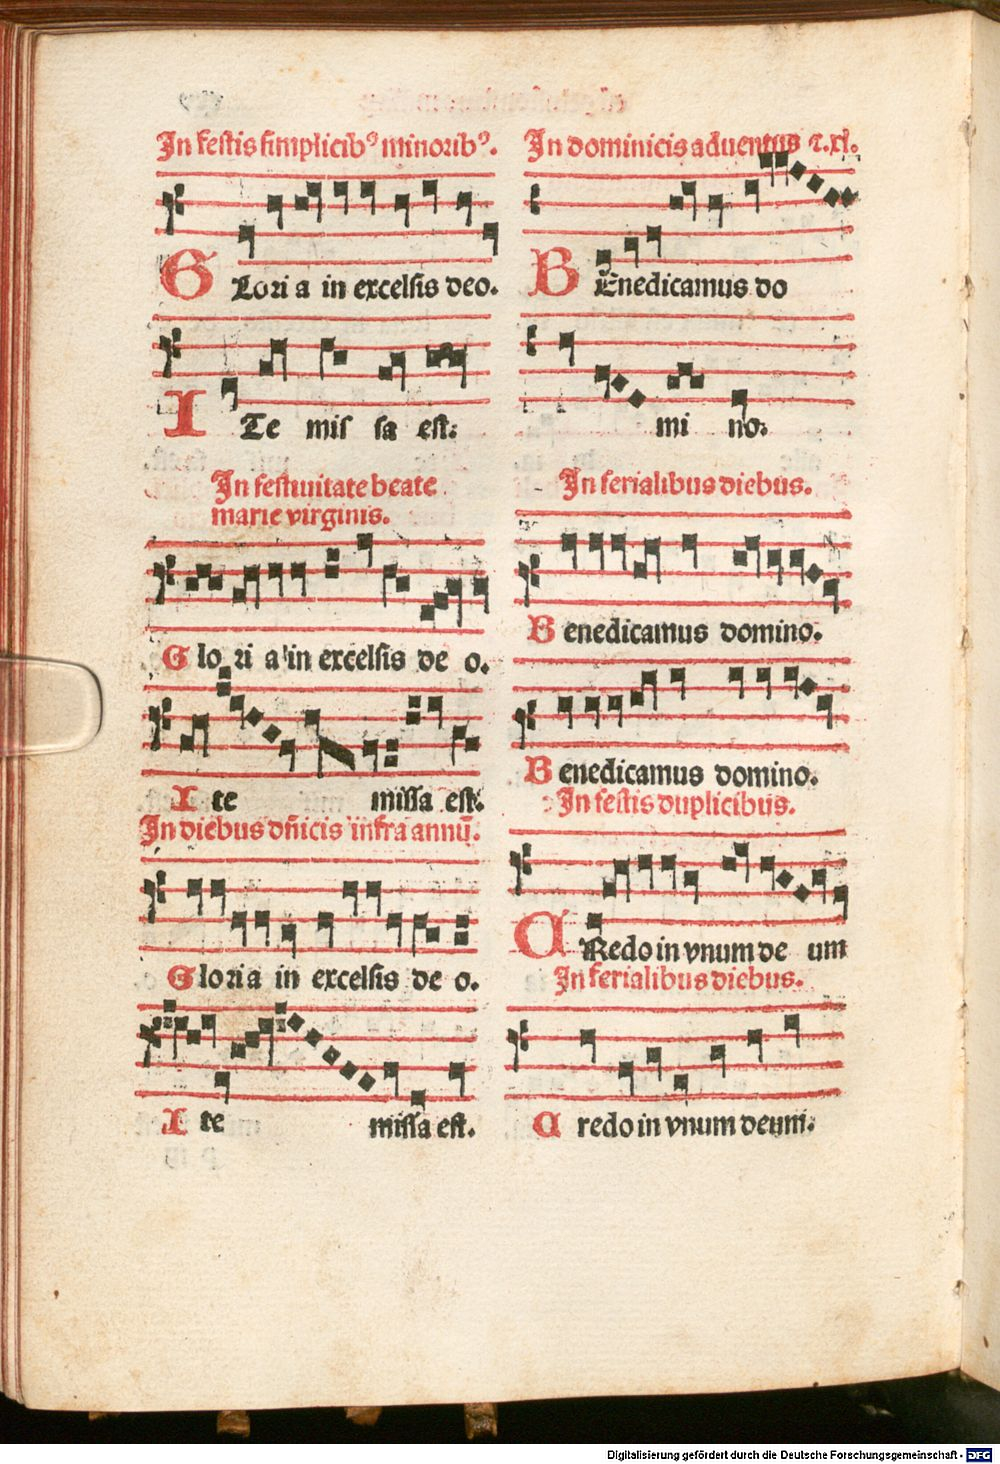 In festis simplicibꝰ minoribꝰ.
GLori a in excelsis deo.
ITe mis sa est.
In festiuitate beate
marie virginis.
Glo ri a in excelsis de o.
Ite missa est.
In diebus dñicis infra annū.
Gloria in excelsis de o.
Ite missa est.
In dominicis aduentus ⁊.xl.
BEnedicamus do
mi no.
In ferialibus diebus.
Benedicamus domino.
Benedicamus domino.
In festis duplicibus.
CRedo in vnum de um
In ferialibus diebus.
Credo in vnum deum.
Digitalisierung gefördert durch die Deutsche Forschungsgemeinschaft - DFG